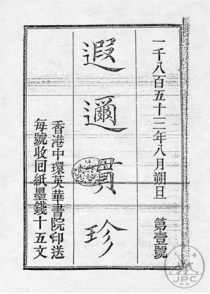 一千八百五十三年八月朔旦　第壹號
遐邇貫珍
香港中環英華書院印送
每號收回紙墨錢十五文
JPC